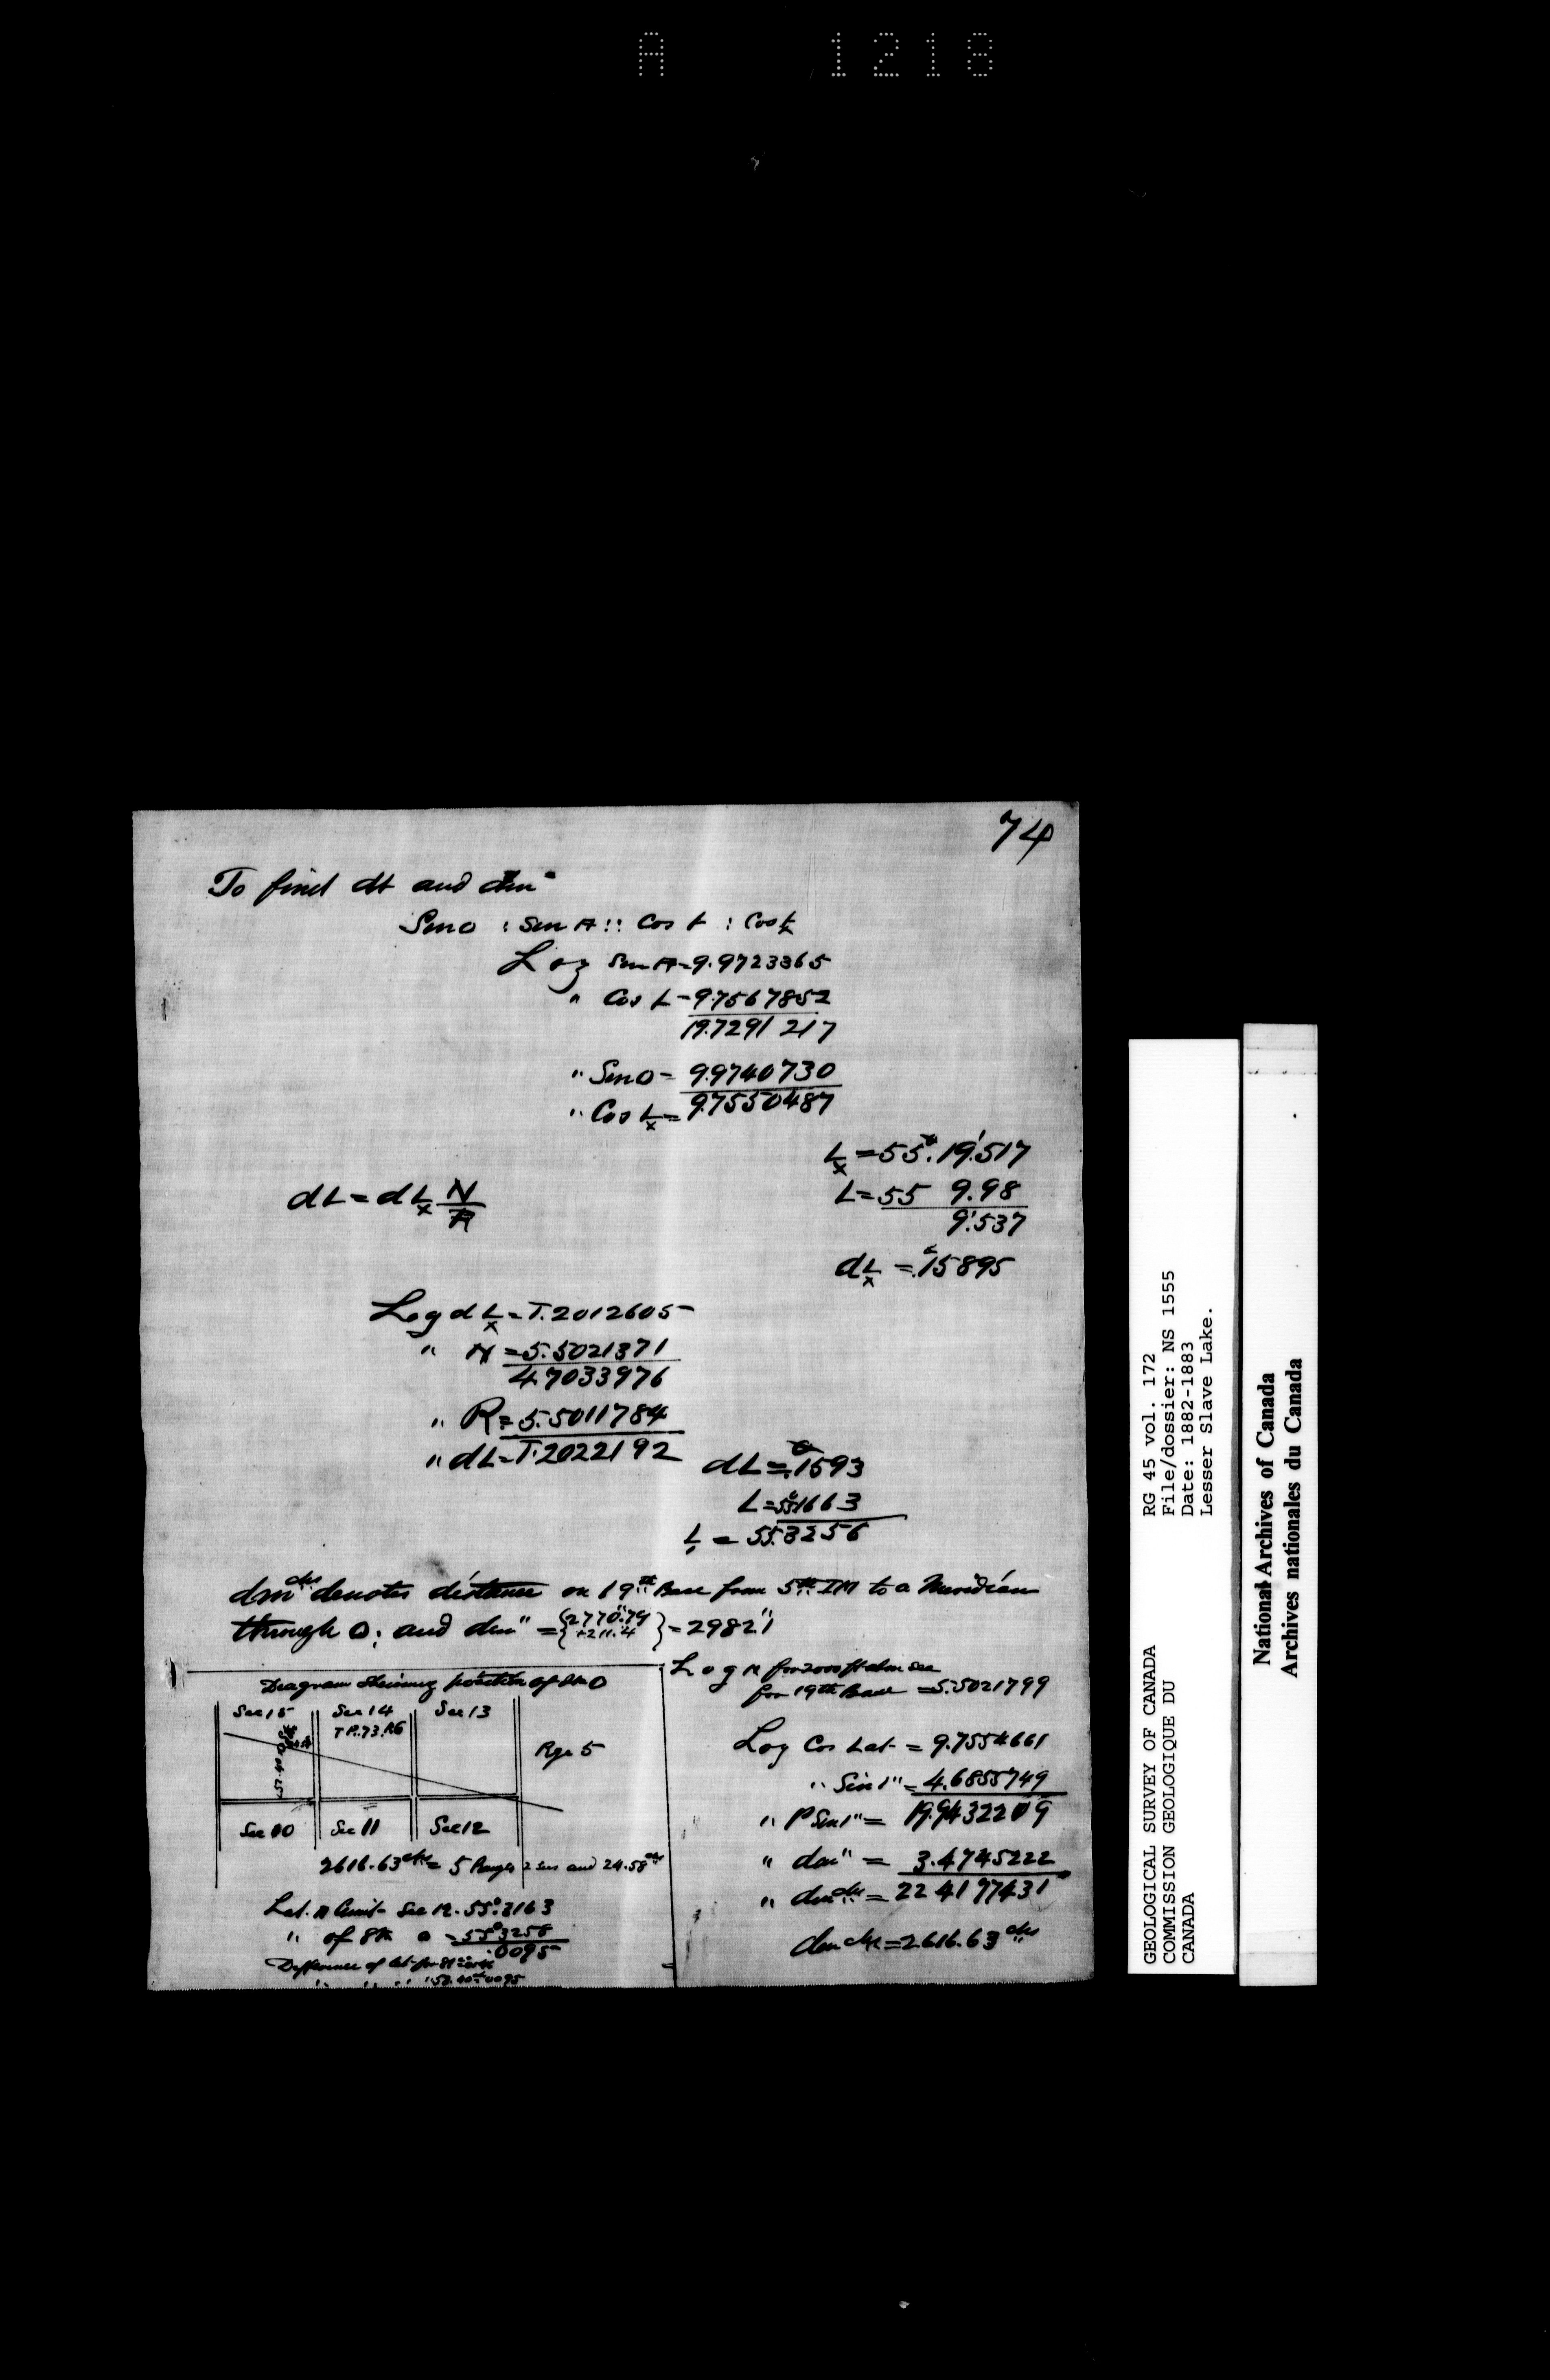 A 1218
74
To find dL and dm"
Sin O : Sin A :: Cos L : Cos Lx
Log Sin A = 9.9723365
" Cos L = 9.7567852
19.7291217
" Sin O = 9.9740730
" Cos Lx = 9.7550487
Lx = 55°.19'.517
L = 55 9.98
9'.537
dLx = °.15895
dL = dLx N/R
Log dLx = 1.2012605
" N = 5.5021371
4.7033976
" R = 5.5011784
" dL = 1.2022192
dL = °.1593
L = 55°.1663
L, = 55.3256
dm chs denotes distance on 19th Base from 5th IM to a Meridian
through O; and dm" = {2770".79 +211.4} = 2982"1
Diagram Shewing position of Stn O
Sec 15 Sec 14 Sec 13
TP.73.R6
57.40
Rge 5
Sec 10 Sec 11 Sec 12
2616.63 chs = 5 Ranges 2 Secs and 24.58 chs
Lat. N limit Sec 12 = 55°.3163
" of Stn O = 55°3258
.0095
Difference of lat. for
" " " " 57.40 .0095
Log N for 2000 ft abv sea
for 19th Base = 5.5021799
Log Cos Lat = 9.7554661
" Sin 1" = 4.6855749
" P Sin 1" = 19.9432209
" dm" = 3.4745222
" dm chs = 22 4177431
dm chs = 2616.63 chs
GEOLOGICAL SURVEY OF CANADA
COMMISSION GEOLOGIQUE DU
CANADA
RG 45 vol. 172
File/dossier: NS 1555
Date: 1882-1883
Lesser Slave Lake.
National Archives of Canada
Archives nationales du Canada